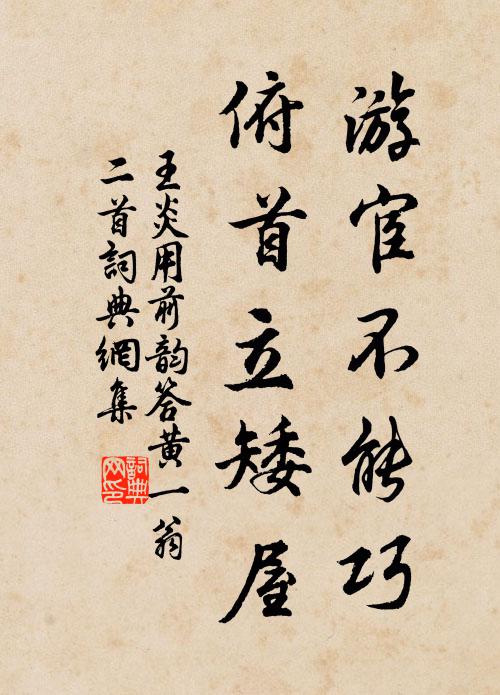 游宦不能巧
俯首立矮屋
王炎用前韵答黄一翁
二首詞典網集
詞典
网印